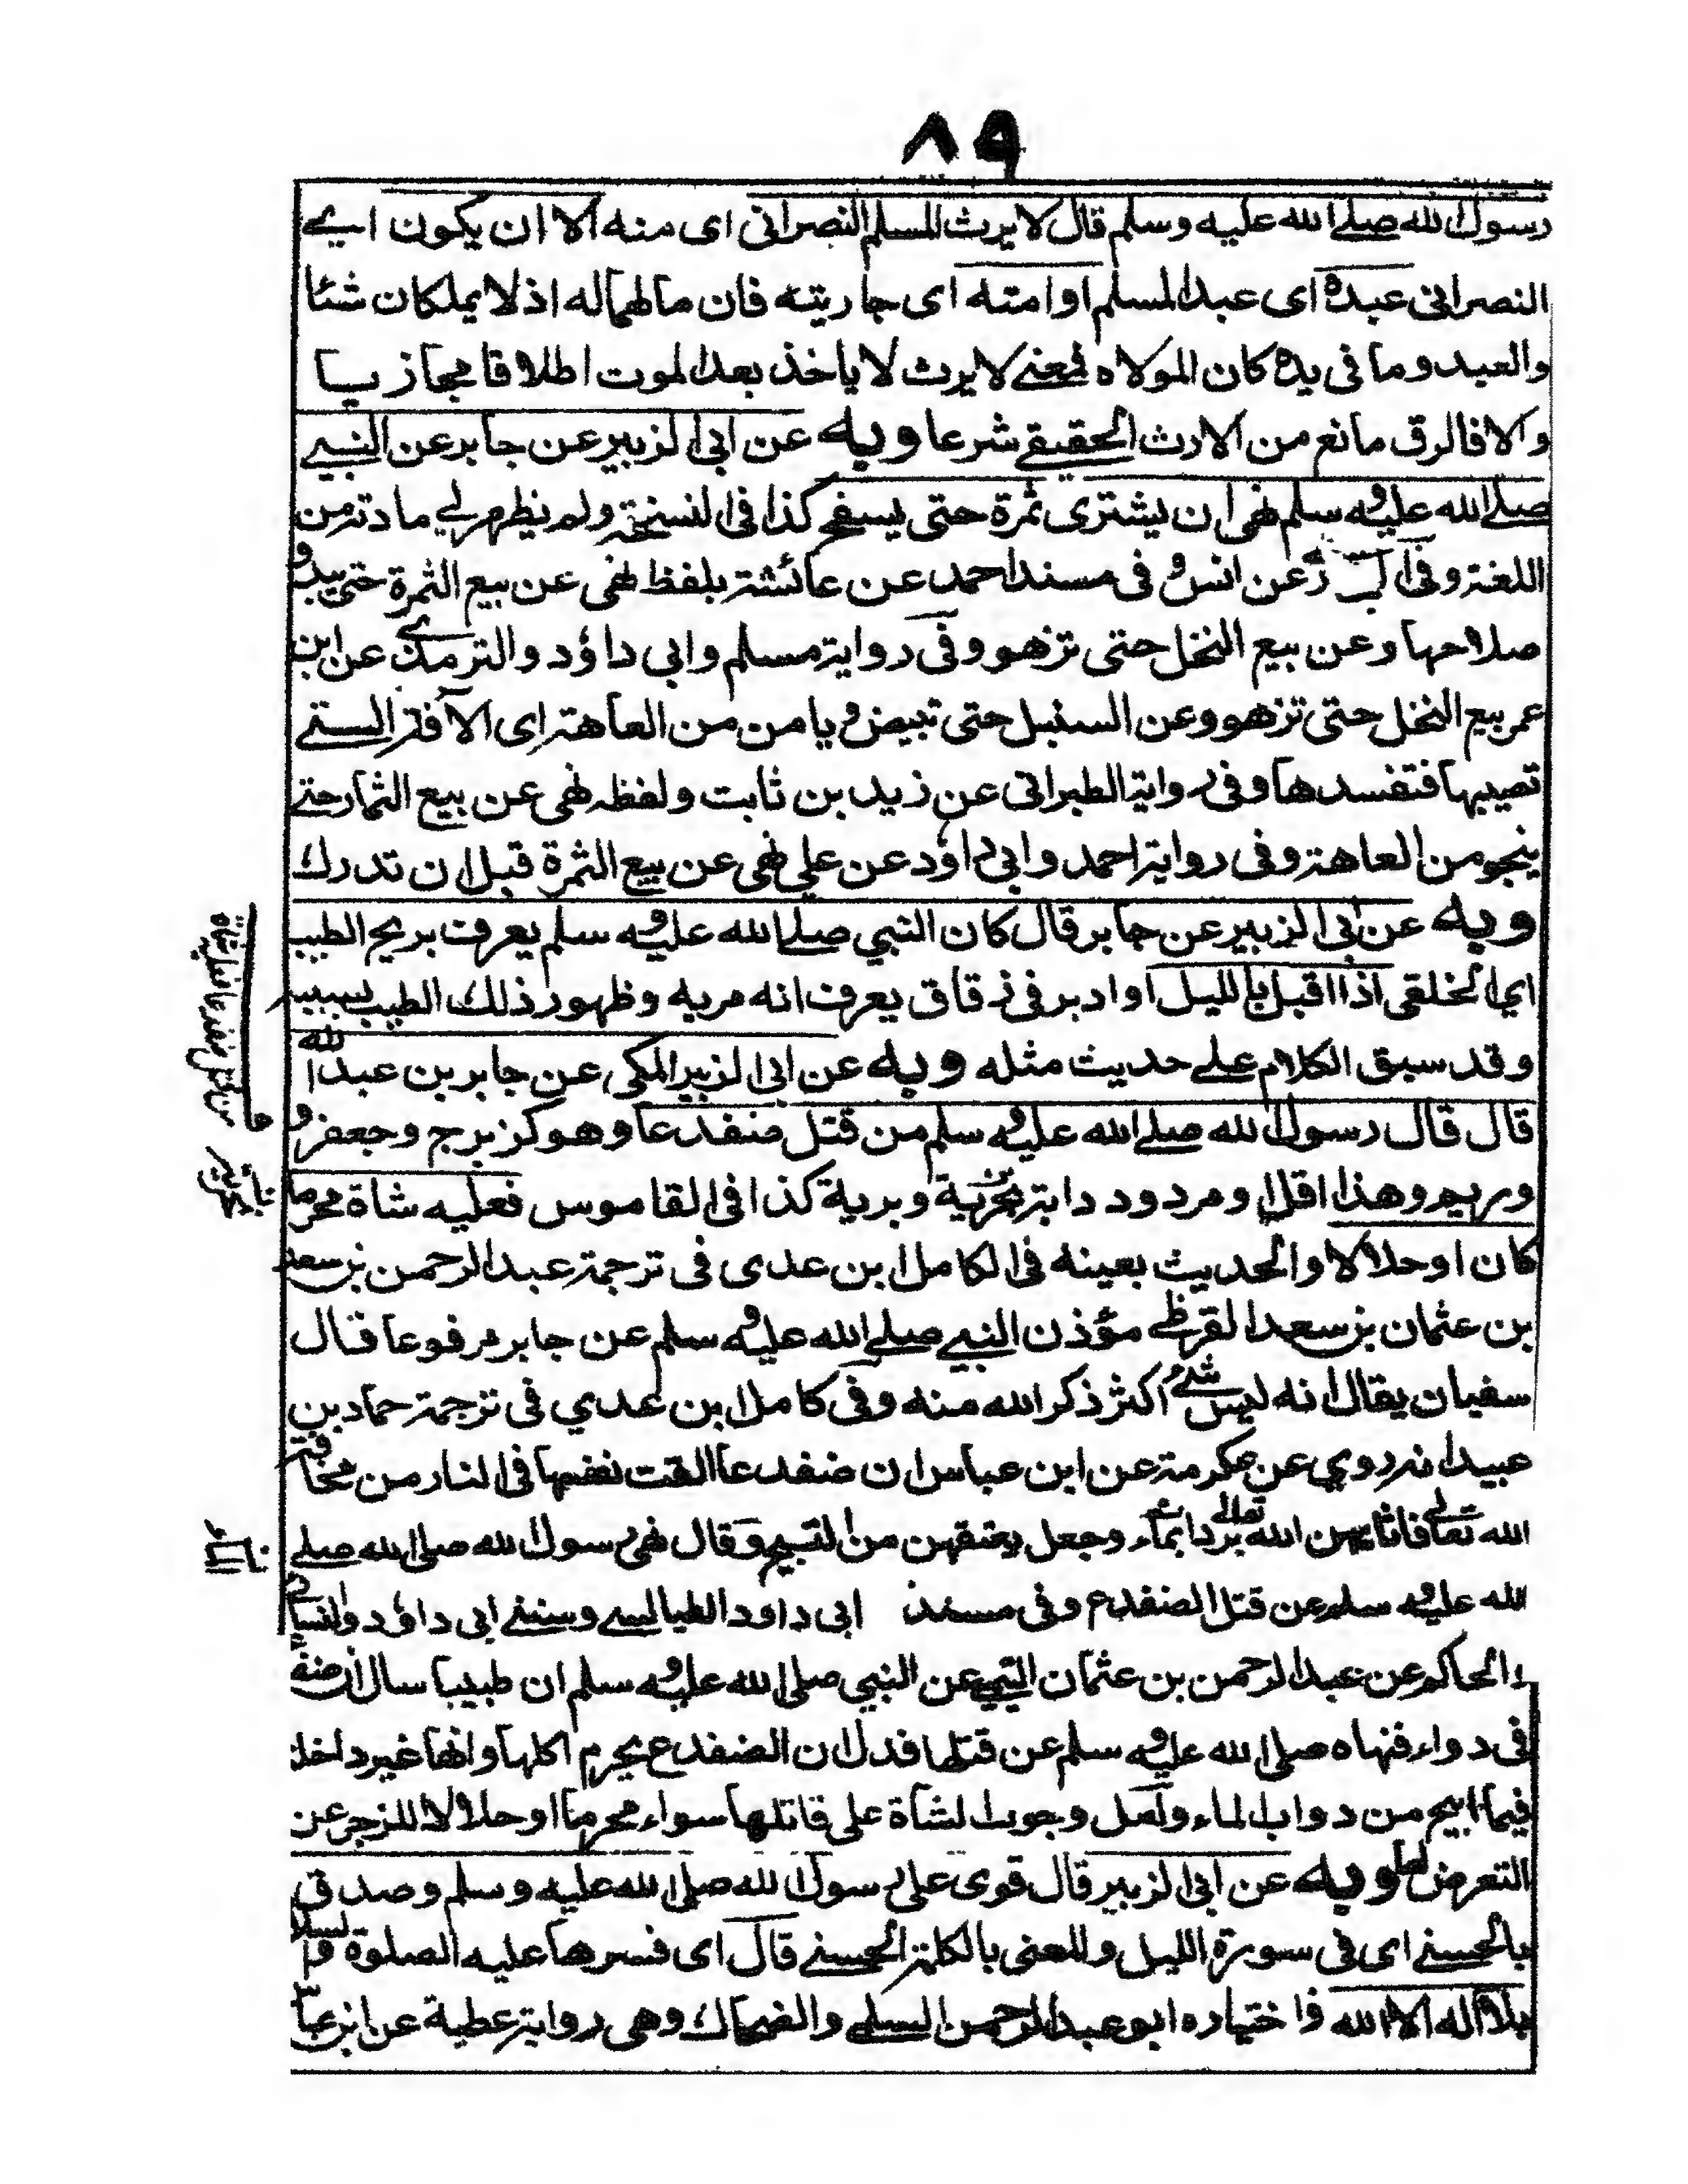 ٨٩
رسول الله صلے الله عليه وسلم قال لا يرث المسلم النصرانى اى منه الا ان يكون اى
النصرانى عبده اى عبد المسلم او امته اى جاريته فان مالهما له اذ لا يملكان شئا
والعبد وما فى يده كان لمولاه فمعنے لا يرث لا ياخذ بعد الموت اطلاقا مجازيا
والا فالرق مانع من الارث الحقيقے شرعا وبه عن ابى الزبير عن جابر عن النبے
صلے الله عليه وسلم نهى ان يشترى ثمرة حتى يسفح كذا فى النسخة ولم يظهر لے مادته من
اللغة وفى عن انس و فى مسند احمد عن عائشة بلفظ نهى عن بيع الثمرة حتى يبدو
صلاحها وعن بيع النخل حتى تزهو وفى رواية مسلم وابى داؤد والترمذے عن ابن
عمر بيع النخل حتى تزهو وعن السنبل حتى تبيض ويامن من العاهة اى الآفة التے
تصيبها فتفسدها وفى رواية الطبرانى عن زيد بن ثابت ولفظه نهى عن بيع الثمار حتے
ينجو من العاهة وفى رواية احمد وابى داؤد عن على نهى عن بيع الثمرة قبل ان تدرك
وبه عن ابى الزبير عن جابر قال كان النبي صلے الله عليه وسلم يعرف بريح الطيب
اى الخلقى اذا اقبل بالليل او ادبر فى زقاق يعرف انه مر به وظهور ذلك الطيب بسببه
وقد سبق الكلام علے حديث مثله وبه عن ابى الزبير المكى عن جابر بن عبد الله
قال قال رسول الله صلے الله عليه وسلم من قتل ضفدعا وهو كزبرج وجعفر و
ودرهم وهذا اقل او مردود دابة بحرية وبرية كذا فى القاموس فعليه شاة محرما
كان او حلالا والحديث بعينه فى الكامل ابن عدى فى ترجمة عبد الرحمن بن سعد
بن عثمان بن سعد القرظے مؤذن النبے صلے الله عليه وسلم عن جابر مرفوعا قال
سفيان يقال انه ليس شئ اكثر ذكر الله منه وفى كامل ابن عدي فى ترجمة حماد بن
عبيد انه روي عن عكرمة عن ابن عباس ان ضفدعا القت نفسها فى النار من مخافة
الله تعالى فاثابهن الله تعالى برد الماء وجعل نعيقهن من التسبيح وقال نهى رسول الله صلى الله صلے
الله عليه وسلم عن قتل الضفدع وفى مسند ابى داود الطيالسے وسنن ابى داؤد والنسائى
والحاكم عن عبد الرحمن بن عثمان التيمے عن النبي صلى الله عليه وسلم ان طبيبا سال ان ضفد
فى دواء فنهاه صلى الله عليه وسلم عن قتلها فدل ان الضفدع يحرم اكلها وانها غير داخلة
فيما ابيح من دواب الماء ولعل وجوب الشاة على قاتلها سواء محرما او حلالا للزجر عن
التعرض لها وبه عن ابى الزبير قال قرى على رسول الله صلى الله عليه وسلم وصدق
بالحسنے اى فى سورة الليل والمعنى بالكلمة الحسنے قال اى فسرها عليه الصلوة والسلام
بلا اله الا الله فاختياره ابو عبد الرحمن السلمے والضحاك وهى رواية عطية عن ابن عبا